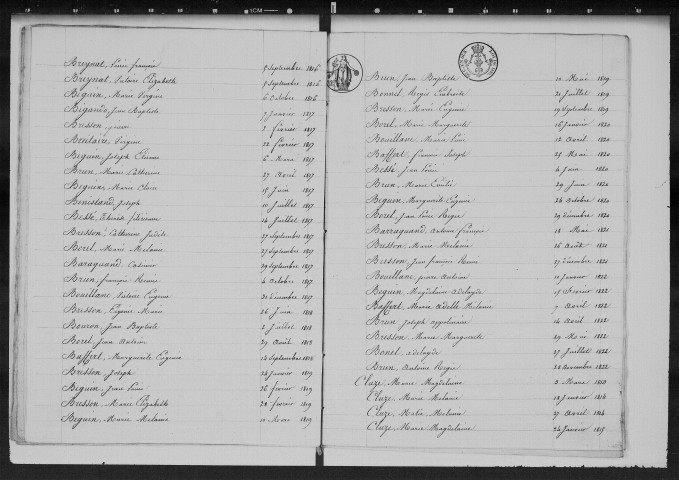 Breynat, Louis françois 5 Septembre 1816
Breynat, Victoire Elizabeth 5 Septembre 1816
Beguin, Marie Virginie 6 Octobre 1816
Bigando, Jean Baptiste 7 Janvier 1817
Bresson, pierre 2 fevrier 1817
Boulaire, Virginie 22 fevrier 1817
Beguin, Joseph Etienne 6 Mars 1817
Brun, Marie Catherine 27 Aout 1817
Beguin, Marie Claire 19 Juin 1817
Benistand, Joseph 10 Juillet 1817
Besse, Thérèse 14 Juillet 1817
Bresson, Catherine Judith 27 Septembre 1817
Borel, Marie Melanie 27 Septembre 1817
Baraquand, Casimir 29 Septembre 1817
Brun, françois Regis 4 Octobre 1817
Bouillane, Victoire Eugenie 31 Décembre 1817
Bresson, Eugene Marie 26 Juin 1818
Bouron, Jean Baptiste 2 Juillet 1818
Borel, Jean Antoine 29 Aout 1818
Baffert, Marguerite Eugenie 12 Septembre 1818
Bresson, Joseph 24 Janvier 1819
Beguin, Jean Louis 26 fevrier 1819
Bresson, Marie Elizabeth 28 fevrier 1819
Beguin, Marie Melanie 10 Mars 1819
Brun, Jean Baptiste 10 Mai 1819
Bonnet, Regis 21 Juillet 1819
Bresson, Marie Eugenie 19 Septembre 1819
Borel, Marie Marguerite 16 Janvier 1820
Bouillane, Marie 12 Avril 1820
Baffert, francois Joseph 25 Mai 1820
Besse, Jean Louis 4 Juin 1820
Brun, Marie Emilie 29 Juin 1820
Beguin, Marguerite Eugenie 26 Octobre 1820
Borel, Jean Louis Regis 29 Décembre 1820
Barraquand, Antoine françois 18 Mai 1821
Bresson, Marie Melanie 16 Août 1821
Bresson, Jean françois Remi 27 Décembre 1821
Bouillane, pierre Antoine 11 Janvier 1822
Beguin, Magdelaine adelayde 15 fevrier 1822
Baffert, Marie adelle Melanie 7 Avril 1822
Brun, Joseph appolinaire 14 Aout 1822
Bresson, Marie Marguerite 29 Mai 1822
Bonel, adelayde 27 Juillet 1822
Brun, Antoine Regis 28 novembre 1822
Cluze, Marie Magdelaine 2 Mars 1814
Cluze, Marie Melanie 18 Janvier 1814
Cluze, Marie Melanie 27 Avril 1814
Cluze, Marie Magdelaine 24 Janvier 1815